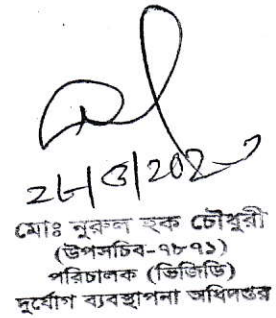 মোঃ নুরুল হক চৌধুরী
(উপসচিব-৭৮৭১)
পরিচালক (ভিজিডি)
দুর্যোগ ব্যবস্থাপনা অধিদপ্তর